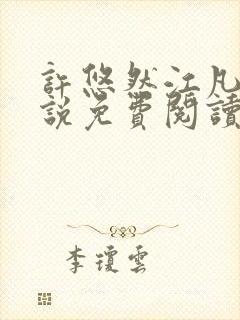 許悠然江凡
說免費閱讀
李瓊雲